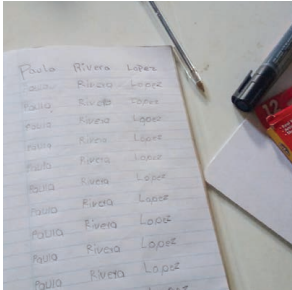 Paula Rivera Lopez
Paula Rivera Lopez
Paula Rivera Lopez
Paula Rivera Lopez
Paula Rivera Lopez
Paula Rivera Lopez
Paula Rivera Lopez
Paula Rivera Lopez
Paula Rivera Lopez
Paula Rivera Lopez
Paula Rivera Lopez
Lopez
12